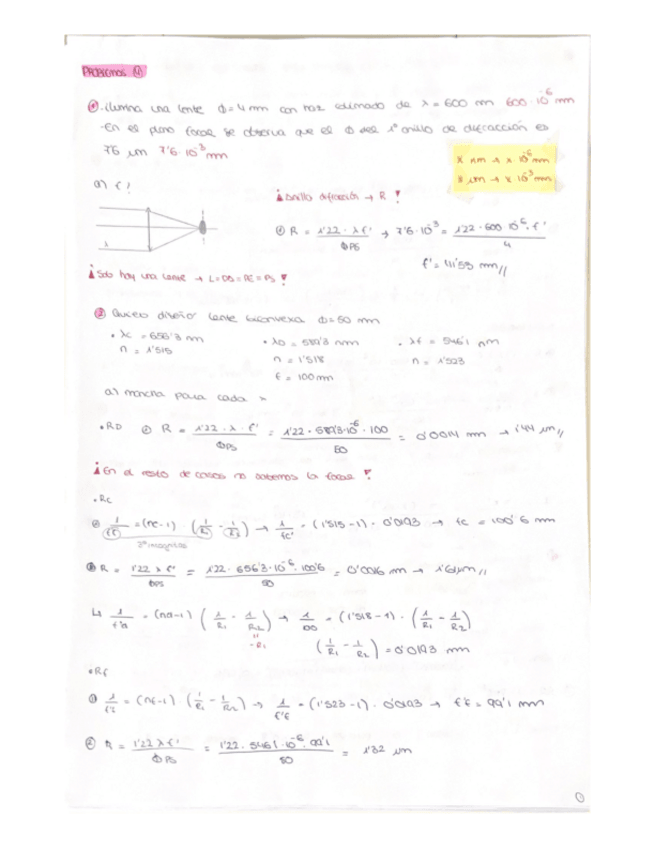 PROBLEMAS 4
1. ilumina una lente Φ=4 mm con haz colimado de λ=600 nm 600·10⁻⁶ mm
·En el plano focal se observa que el Φ del 1º anillo de difracción es
7'6 μm 7'6·10⁻³ mm
X nm → x 10⁻⁶ mm
X μm → x 10⁻³ mm
a) f'?
¡anillo difracción → R!
① R = 1'22·λf' / ΦPS → 7'6·10⁻³ = 1'22·600·10⁻⁶·f' / 4
f' = 41'53 mm//
λ
¡Solo hay una lente → L=DA=PE=PS!
2. Quiero diseño lente biconvexa Φ=50 mm
• λc = 656'3 nm • λD = 589'3 nm • λf = 546'1 nm
n = 1'515 n = 1'518 n = 1'523
f = 100 mm
a) mancha para cada λ
• RD ① R = 1'22·λ·f' / ΦPS = 1'22·589'3·10⁻⁶·100 / 50 = 0'0014 mm → 1'44 μm//
¡En el resto de casos no sabemos la focal!
• Rc
① 1/fc' = (nc-1)·(1/R1 - 1/R2) → 1/fc' = (1'515-1)·0'0193 → fc = 100'6 mm
② R = 1'22 λ f' / ΦPS = 1'22·656'3·10⁻⁶·100'6 / 50 = 0'0016 mm → 1'61 μm//
↳ 1/f'd = (nd-1) (1/R1 - 1/R2) → 1/100 = (1'518-1)·(1/R1 - 1/R2)
-R1
(1/R1 - 1/R2) = 0'0193 mm
• Rf
① 1/f'f = (nf-1)·(1/R1 - 1/R2) → 1/f'f = (1'523-1)·0'0193 → f'f = 99'1 mm
② R = 1'22 λ f' / ΦPS = 1'22·546'1·10⁻⁶·99'1 / 50 = 1'32 μm
1